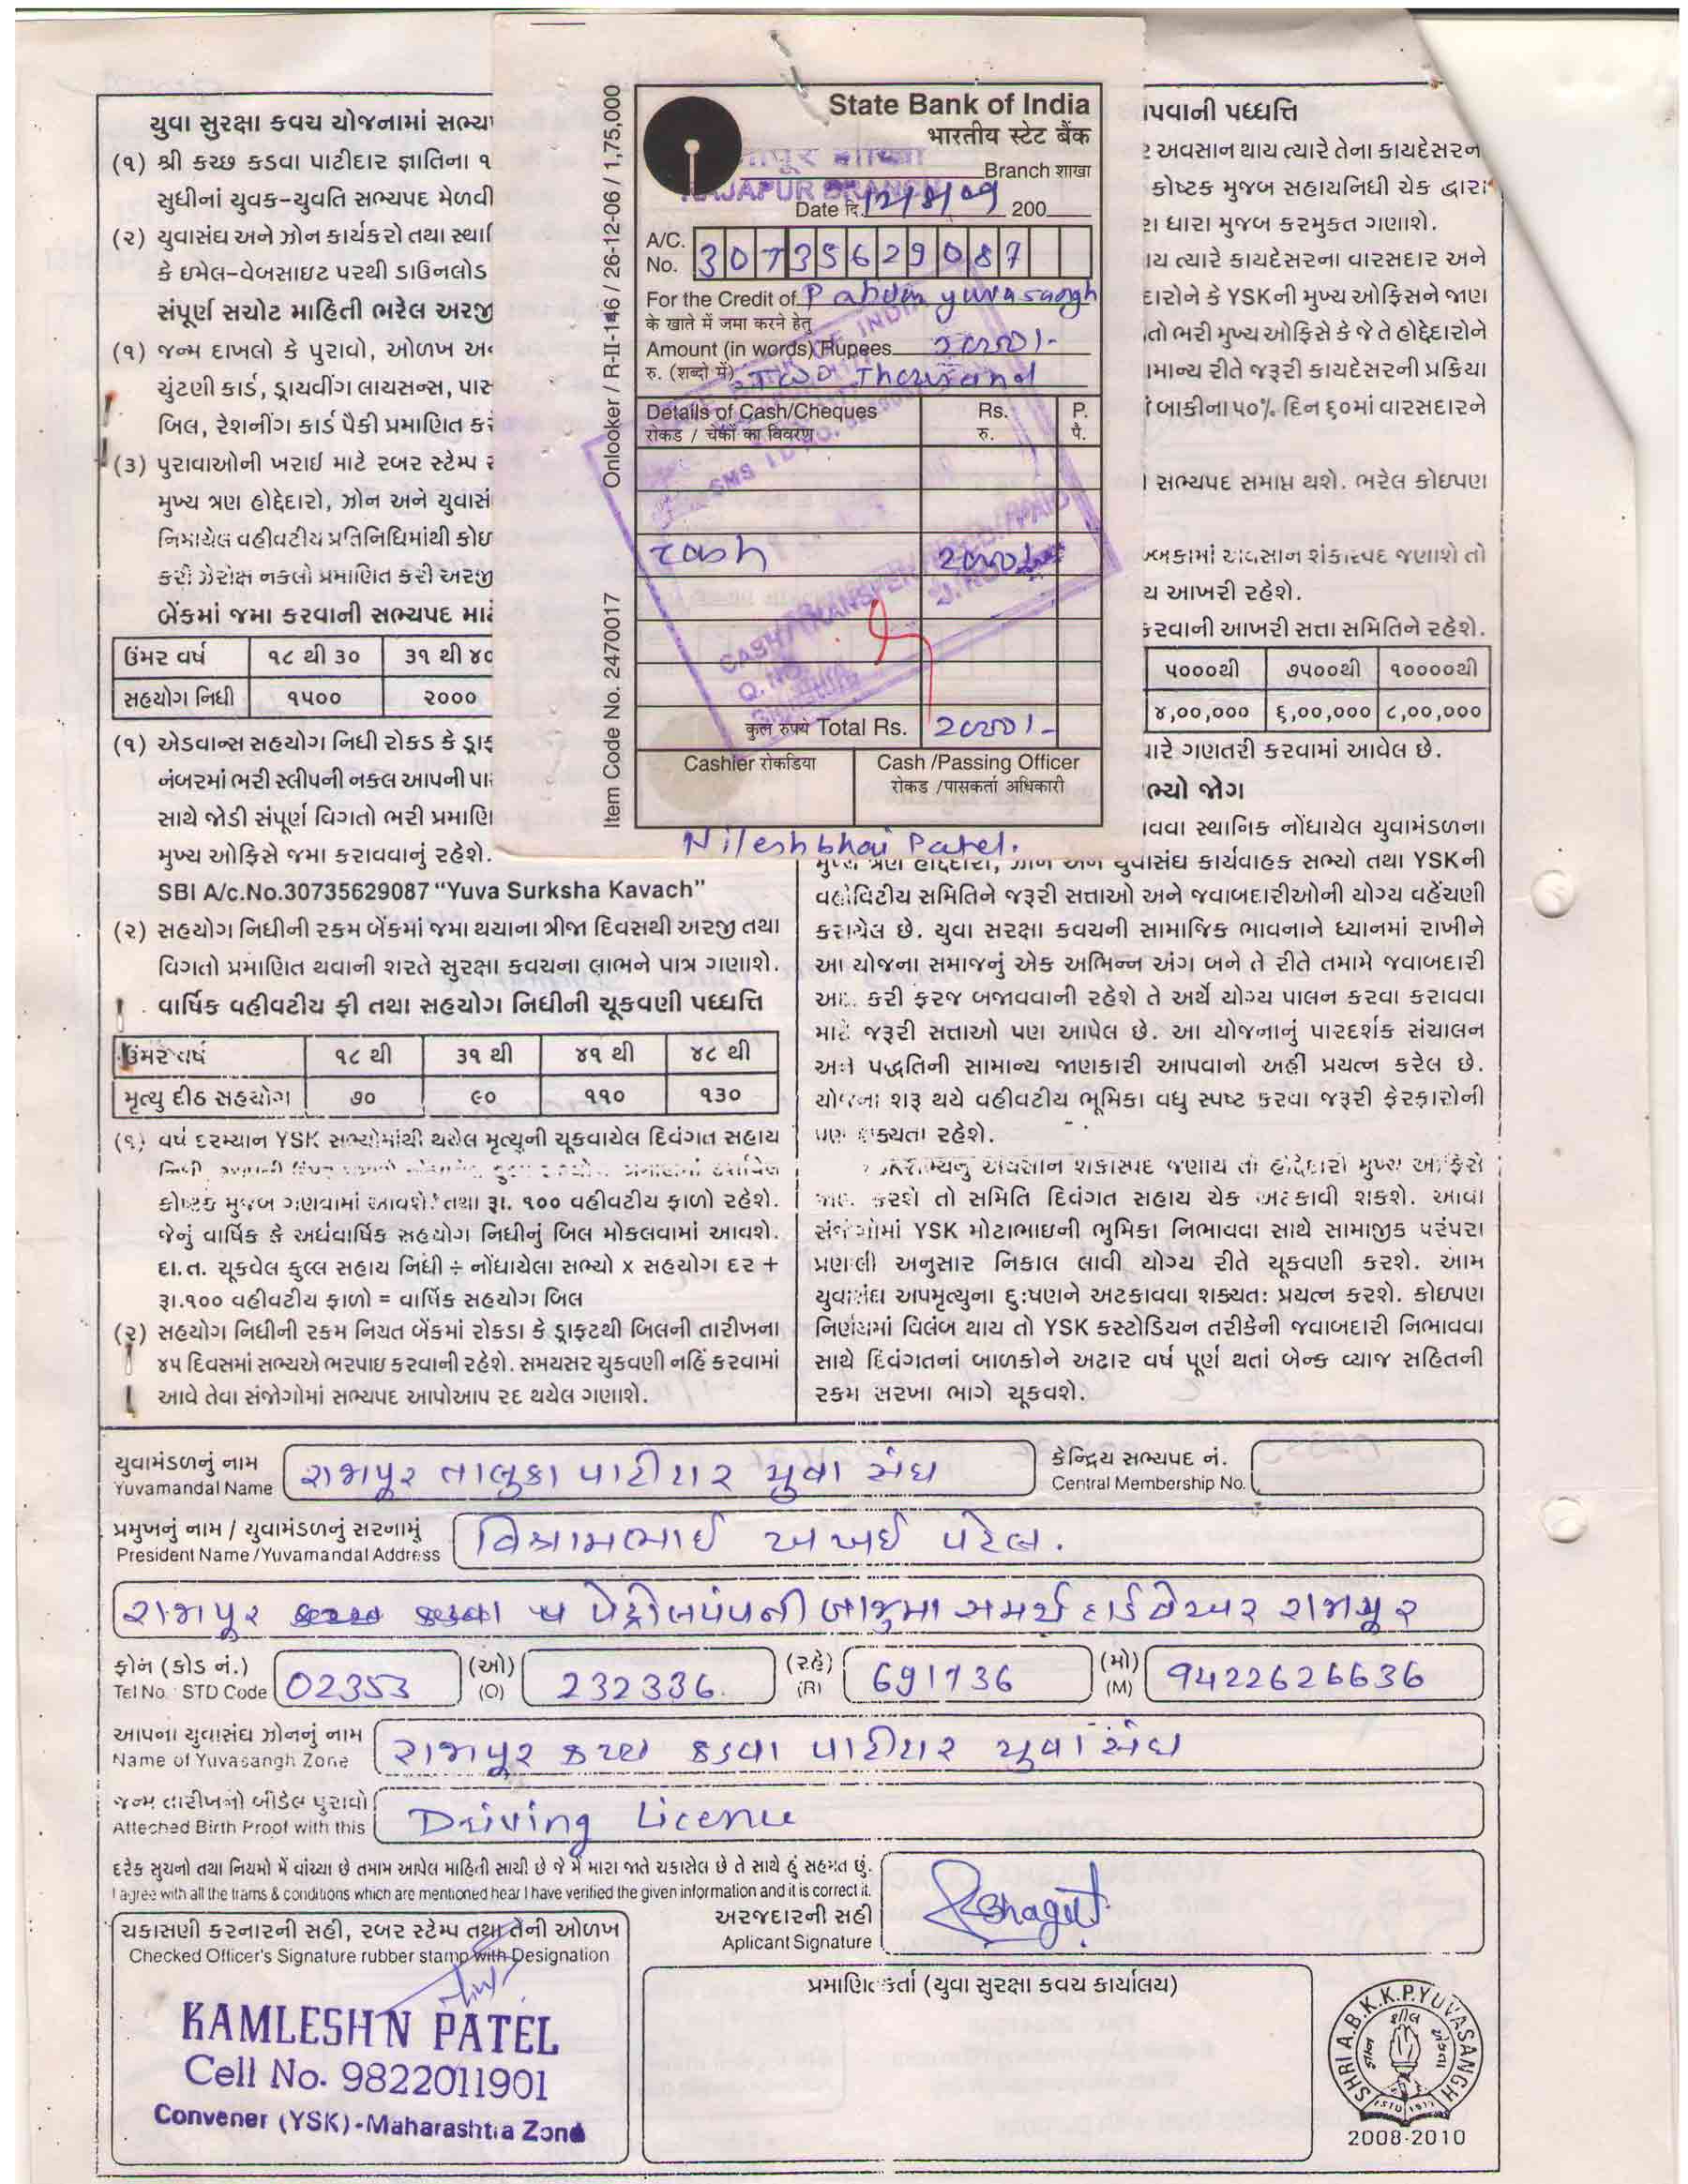 યુવા સુરક્ષા કવચ યોજનામાં સભ્ય
(૧) શ્રી કચ્છ કડવા પાટીદાર જ્ઞાતિના ૧
સુધીનાં યુવક-યુવતિ સભ્યપદ મેળવી
(૨) યુવાસંઘ અને ઝોન કાર્યકરો તથા
કે ઇમેલ-વેબસાઇટ પરથી ડાઉનલોડ
સંપૂર્ણ સચોટ માહિતી ભરેલ અરજી
(૧) જન્મ દાખલો કે પુરાવો, ઓળખ
ચુંટણી કાર્ડ, ડ્રાયવીંગ લાયસન્સ, પાસ
બિલ, રેશનીંગ કાર્ડ પૈકી પ્રમાણિત
(૩) પુરાવાઓની ખરાઇ માટે રબર સ્ટેમ્પ
મુખ્ય ત્રણ હોદ્દેદારો, ઝોન અને યુવાસં
નિમાયેલ વહીવટીય પ્રતિનિધિમાંથી કોઇ
કરી ઝેરોક્ષ નકલો પ્રમાણિત કરી અરજી
બેંકમાં જમા કરવાની સભ્યપદ માટે
ઉંમર વર્ષ ૧૮ થી ૩૦ ૩૧ થી ૪૦
સહયોગ નિધી ૧૫૦૦ ૨૦૦૦
(૧) એડવાન્સ સહયોગ નિધી રોકડ કે ડ્રાફ
નંબરમાં ભરી સ્લીપની નકલ આપની પા
સાથે જોડી સંપૂર્ણ વિગતો ભરી પ્રમાણિ
મુખ્ય ઓફિસે જમા કરાવવાનું રહેશે.
SBI A/c.No.30735629087 “Yuva Surksha Kavach”
(૨) સહયોગ નિધીની રકમ બેંકમાં જમા થયાના ત્રીજા દિવસથી અરજી તથા
વિગતો પ્રમાણિત થવાની શરતે સુરક્ષા કવચના લાભને પાત્ર ગણાશે.
વાર્ષિક વહીવટીય ફી તથા સહયોગ નિધીની ચૂકવણી પધ્ધતિ
ઉંમર વર્ષ ૧૮ થી ૩૧ થી ૪૧ થી ૪૮ થી
મૃત્યુ દીઠ સહયોગ ૭૦ ૯૦ ૧૧૦ ૧૩૦
(૧) વર્ષ દરમ્યાન YSK સભ્યોમાંથી થયેલ મૃત્યુની ચૂકવાયેલ દિવંગત સહાય
કોષ્ટક મુજબ ગણવામાં આવશે. તથા રૂા. ૧૦૦ વહીવટીય ફાળો રહેશે.
જેનું વાર્ષિક કે અર્ધવાર્ષિક સહયોગ નિધીનું બિલ મોકલવામાં આવશે.
દા.ત. ચૂકવેલ કુલ્લ સહાય નિધી ÷ નોંધાયેલા સભ્યો x સહયોગ દર +
રૂા.૧૦૦ વહીવટીય ફાળો = વાર્ષિક સહયોગ બિલ
(૨) સહયોગ નિધીની રકમ નિયત બેંકમાં રોકડા કે ડ્રાફટથી બિલની તારીખના
૪૫ દિવસમાં સભ્યએ ભરપાઇ કરવાની રહેશે. સમયસર ચુકવણી નહિં કરવામાં
આવે તેવા સંજોગોમાં સભ્યપદ આપોઆપ રદ થયેલ ગણાશે.
Item Code No. 2470017 Onlooker / R-II-146 / 26-12-06 / 1,75,000
State Bank of India
भारतीय स्टेट बैंक
RAJAPUR BRANCH
Branch शाखा
Date दि. 12/8/09 200
A/C. No. 30735629087
For the Credit of yuvasangh
के खाते में जमा करने हेतु
Amount (in words) Rupees 2000/-
रु. (शब्दो में) Two Thousand
Details of Cash/Cheques Rs. P.
रोकड / चेकों का विवरण रु. पै.
cash 2000/-
कुल रुपये Total Rs. 2000/-
Cashier रोकडिया Cash /Passing Officer
रोकड /पासकर्ता अधिकारी
Nileshbhai Patel.
પવાની પધ્ધતિ
અવસાન થાય ત્યારે તેના કાયદેસરન
કોષ્ટક મુજબ સહાયનિધી ચેક દ્વારા
રા ધારા મુજબ કરમુકત ગણાશે.
ાય ત્યારે કાયદેસરના વારસદાર અને
દારોને કે YSKની મુખ્ય ઓફિસને જાણ
તો ભરી મુખ્ય ઓફિસે કે જે તે હોદ્દેદારોને
ામાન્ય રીતે જરૂરી કાયદેસરની પ્રક્રિયા
બાકીના ૫૦% દિન ૬૦માં વારસદારને
સભ્યપદ સમાપ્ત થશે. ભરેલ કોઇપણ
અવસાન શંકાસ્પદ જણાશે તો
ય આખરી રહેશે.
કરવાની આખરી સત્તા સમિતિને રહેશે.
૫૦૦૦થી ૭૫૦૦થી ૧૦૦૦૦થી
૪,૦૦,૦૦૦ ૬,૦૦,૦૦૦ ૮,૦૦,૦૦૦
ારે ગણતરી કરવામાં આવેલ છે.
ભ્યો જોગ
વવા સ્થાનિક નોંધાયેલ યુવામંડળના
મુખ્ય ત્રણ હોદ્દેદારો, ઝોન અને યુવાસંઘ કાર્યવાહક સભ્યો તથા YSKની
વહીવિટીય સમિતિને જરૂરી સત્તાઓ અને જવાબદારીઓની યોગ્ય વહેંચણી
કરાયેલ છે. યુવા સરક્ષા કવચની સામાજિક ભાવનાને ધ્યાનમાં રાખીને
આ યોજના સમાજનું એક અભિન્ન અંગ બને તે રીતે તમામે જવાબદારી
કરી ફરજ બજાવવાની રહેશે તે અર્થે યોગ્ય પાલન કરવા કરાવવા
માટે જરૂરી સત્તાઓ પણ આપેલ છે. આ યોજનાનું પારદર્શક સંચાલન
અને પદ્ધતિની સામાન્ય જાણકારી આપવાનો અહીં પ્રયત્ન કરેલ છે.
યોજના શરૂ થયે વહીવટીય ભૂમિકા વધુ સ્પષ્ટ કરવા જરૂરી ફેરફારોની
પણ શક્યતા રહેશે.
અવસાન શંકાસ્પદ જણાય તો હોદ્દેદારો મુખ્ય ઓફિસે
જાણ કરશે તો સમિતિ દિવંગત સહાય ચેક અટકાવી શકશે. આવા
સંજોગોમાં YSK મોટાભાઇની ભુમિકા નિભાવવા સાથે સામાજીક પરંપરા
પ્રણાલી અનુસાર નિકાલ લાવી યોગ્ય રીતે ચૂકવણી કરશે. આમ
યુવાસંઘ અપમૃત્યુના દુઃષણને અટકાવવા શક્યતઃ પ્રયત્ન કરશે. કોઇપણ
નિર્ણયમાં વિલંબ થાય તો YSK કસ્ટોડિયન તરીકેની જવાબદારી નિભાવવા
સાથે દિવંગતનાં બાળકોને અઢાર વર્ષ પૂર્ણ થતાં બેન્ક વ્યાજ સહિતની
રકમ સરખા ભાગે ચૂકવશે.
યુવામંડળનું નામ રાજાપૂર તાલુકા પાટીદાર યુવા સંઘ કેન્દ્રિય સભ્યપદ નં.
Yuvamandal Name Central Membership No.
પ્રમુખનું નામ / યુવામંડળનું સરનામું વિશ્રામભાઈ અખઈ પટેલ.
President Name/Yuvamandal Address
રાજાપૂર પેટ્રોલપંપની બાજુમા સમર્થ હાર્ડવેઅર રાજાપૂર
ફોન (કોડ નં.) 02353 (ઓ) 232336 (રહે) 691736 (મો) 9422626636
Tel No. STD Code (O) (R) (M)
આપના યુવાસંઘ ઝોનનું નામ રાજાપૂર કચ્છ કડવા પાટીદાર યુવા સંઘ
Name of Yuvasangh Zone
જન્મ તારીખનો બીડેલ પુરાવો Driving Licence
Atteched Birth Proof with this
દરેક સુચનો તથા નિયમો મેં વાંચ્યા છે તમામ આપેલ માહિતી સાચી છે જે મેં મારા જાતે ચકાસેલ છે તે સાથે હું સહમત છું.
I agree with all the trams & conditions which are mentioned hear I have verified the given information and it is correct it.
અરજદારની સહી
Aplicant Signature
ચકાસણી કરનારની સહી, રબર સ્ટેમ્પ તથા તેની ઓળખ
Checked Officer's Signature rubber stamp with Designation
KAMLESH N PATEL
Cell No. 9822011901
Convener (YSK)-Maharashtra Zone
પ્રમાણિત કર્તા (યુવા સુરક્ષા કવચ કાર્યાલય)
SHRI A.B.K.K.P. YUVASANGH
2008-2010